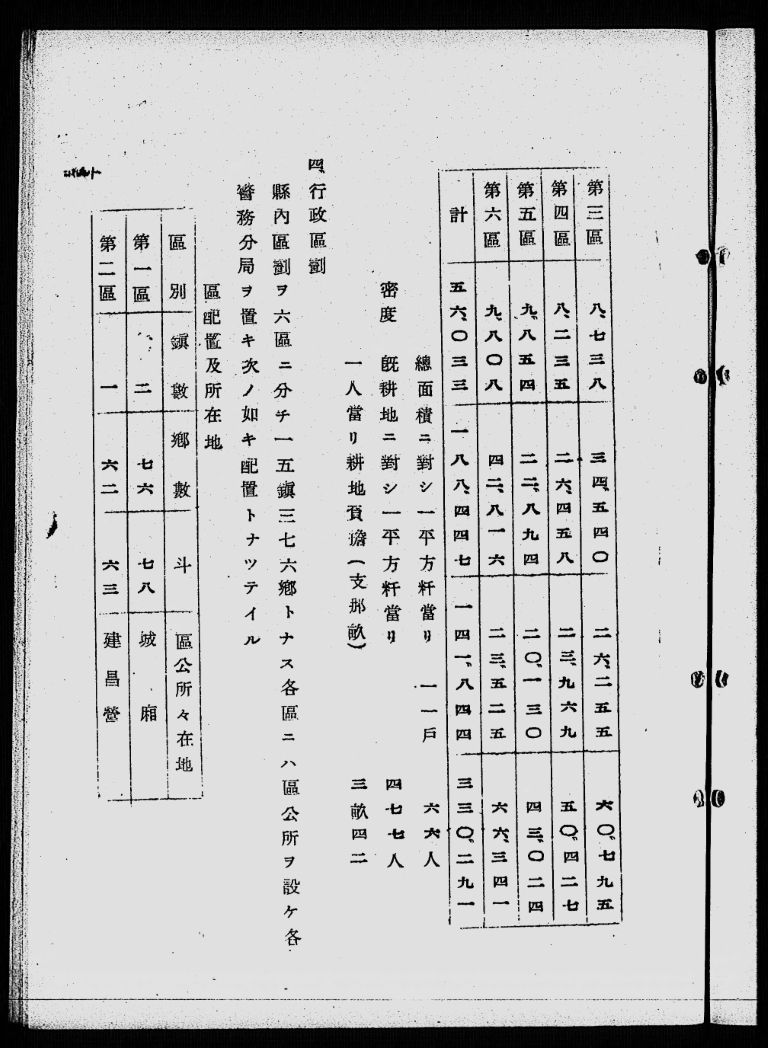 第三區 八、七三八 三四、五四〇 二六、二五五 六〇、七九五
第四區 八、二三五 二六、四五八 二三、九六九 五〇、四二七
第五區 九、八五四 二二、八九四 二〇、一三〇 四三、〇二四
第六區 九、八〇八 四二、八一六 二三、五二五 六六、三四一
計 五六、〇三三 一八八、四四七 一四一、八四四 三三〇、二九一
總面積ニ對シ一平方粁當リ 一一戶 六六人
密度 旣耕地ニ對シ一平方粁當リ 四七七人
一人當リ耕地負擔(支那畝) 三畝四二
四、行政區劃
縣內區劃ヲ六區ニ分チ一五鎭三七六鄕トナス各區ニハ區公所ヲ設ケ各
警務分局ヲ置キ次ノ如キ配置トナツテイル
區配置及所在地
區別 鎭數 鄕數 斗 區公所々在地
第一區 二 七六 七八 城廂
第二區 一 六二 六三 建昌營